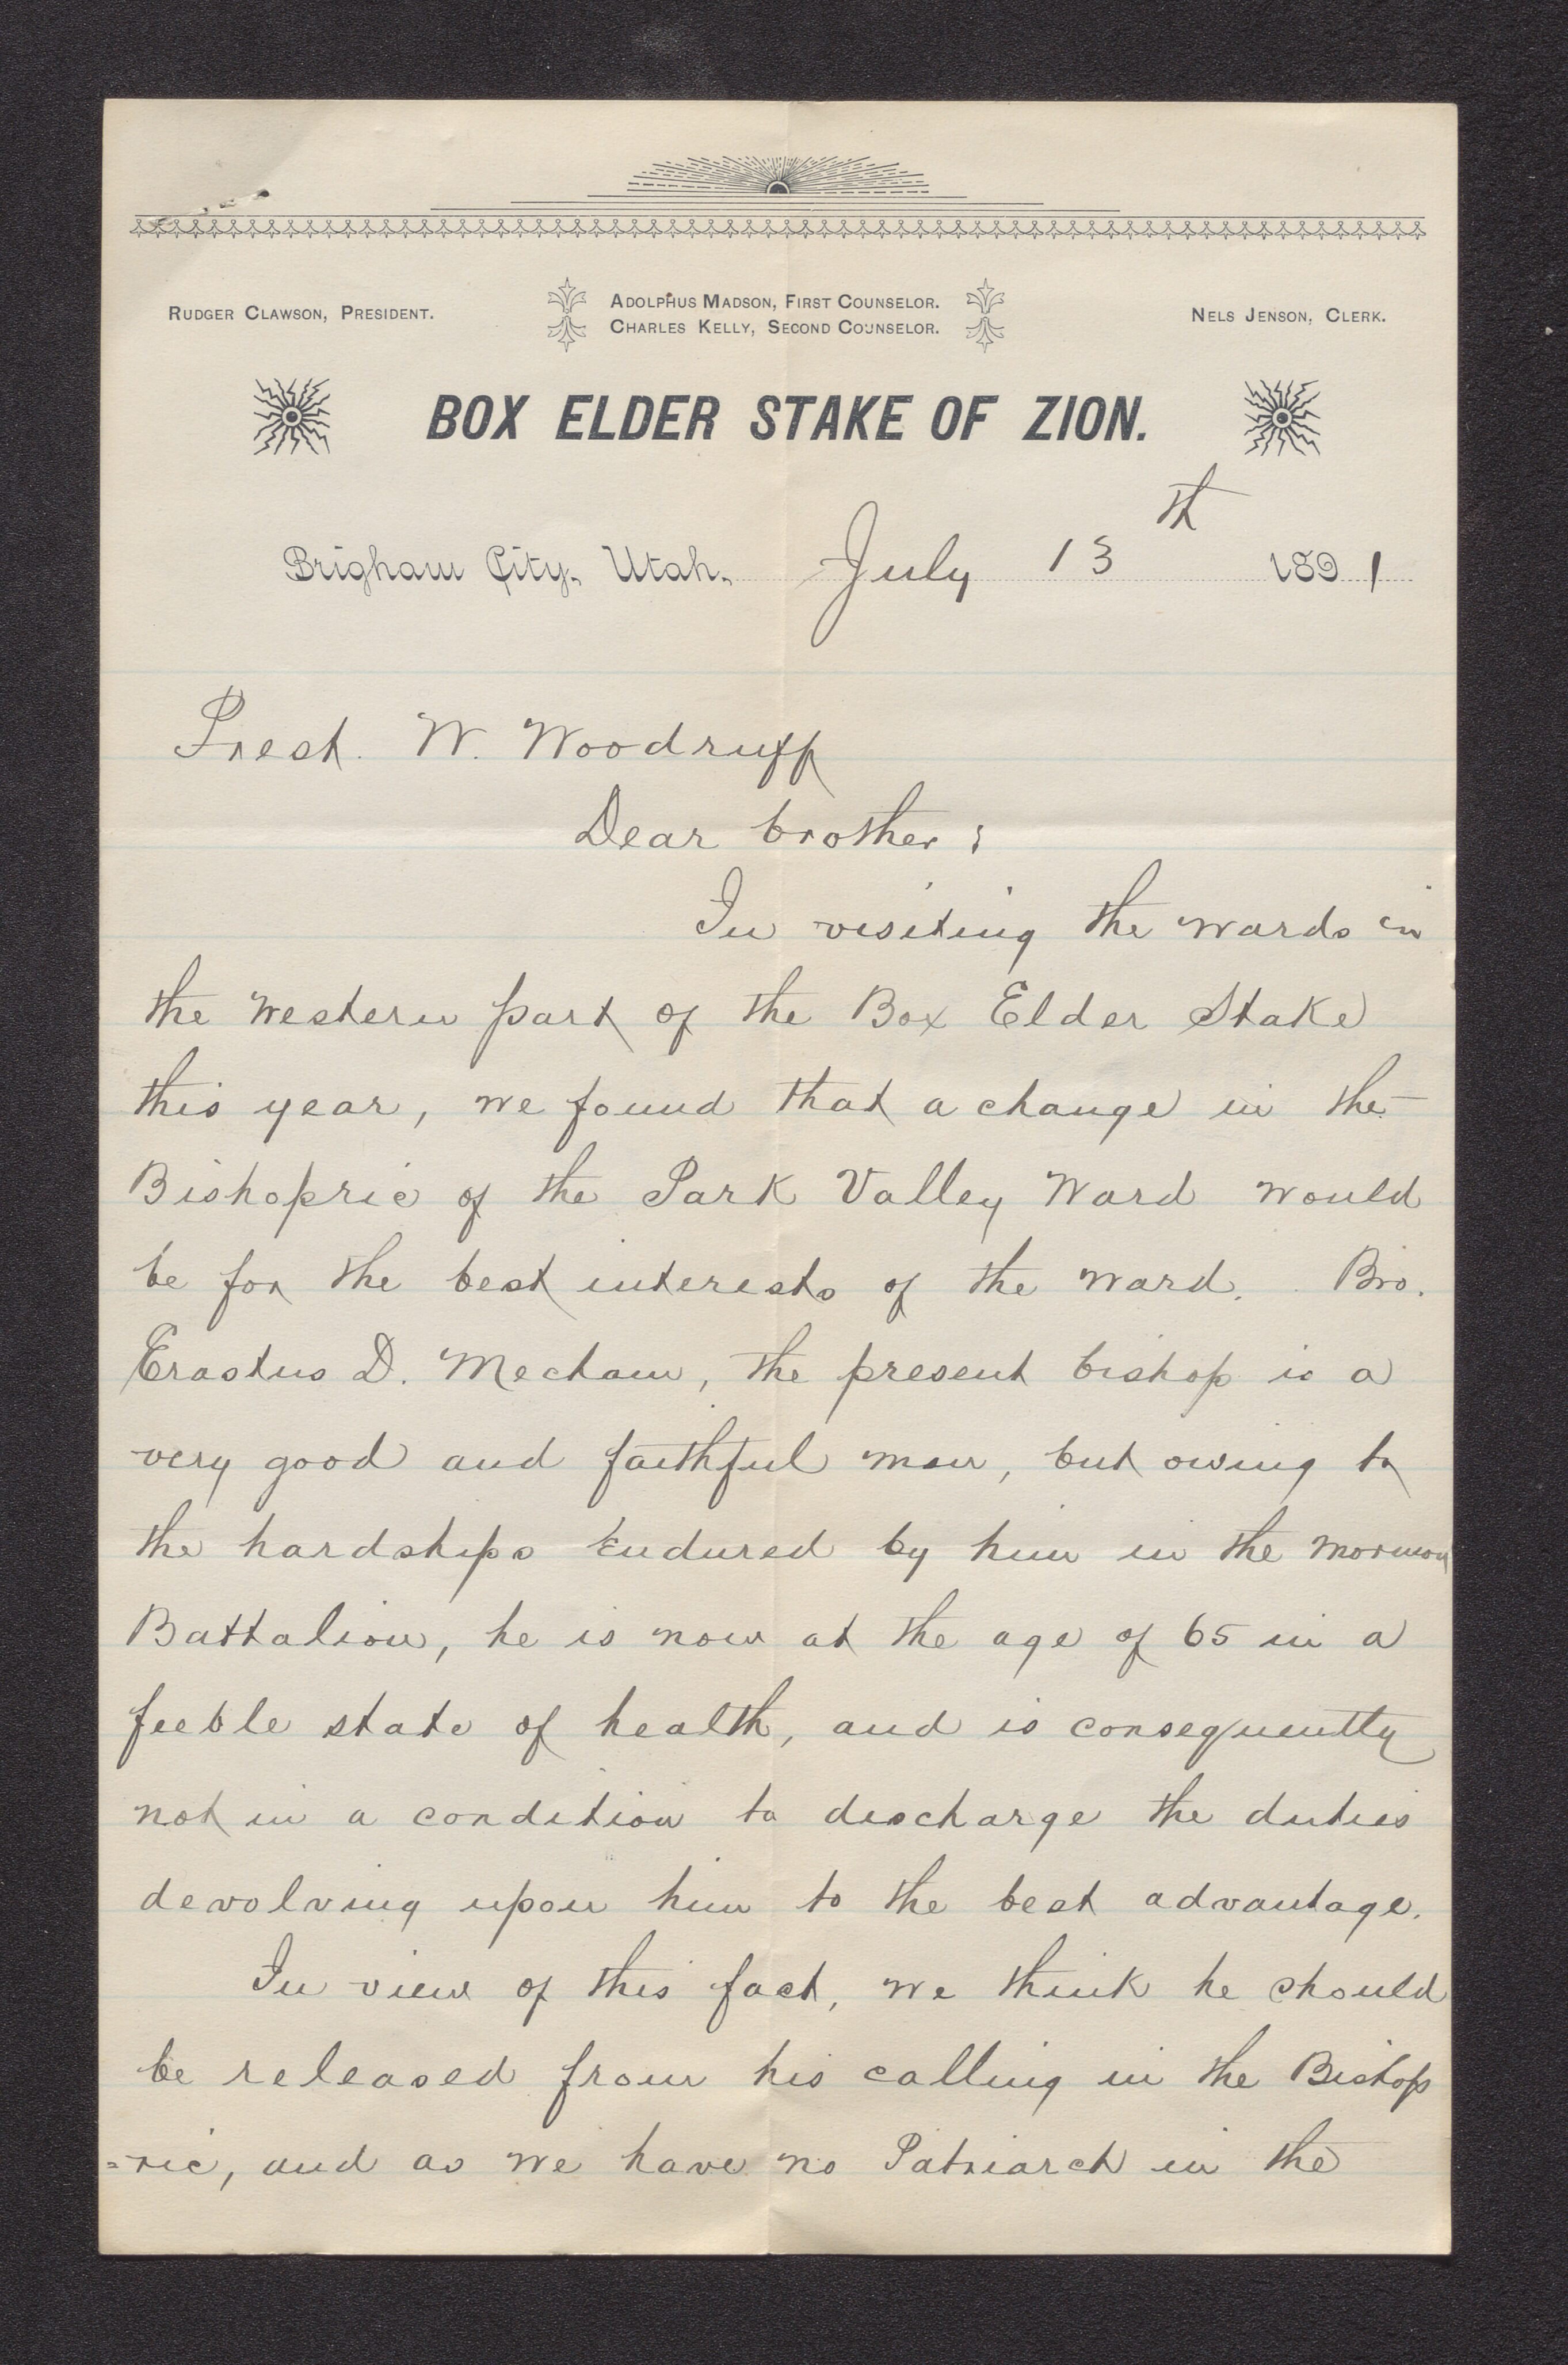 RUDGER CLAWSON, PRESIDENT.
ADOLPHUS MADSON, FIRST COUNSELOR.
CHARLES KELLY, SECOND COUNSELOR.
NELS JENSON, CLERK.
BOX ELDER STAKE OF ZION.
Brigham City, Utah, July 13th 1891
Prest. W. Woodruff
Dear brother;
In visiting the wards in
the western part of the Box Elder Stake
this year, we found that a change in the
Bishopric of the Park Valley Ward would
be for the best interests of the ward. Bro.
Erastus D. Mecham, the present bishop is a
very good and faithful man, but owing to
the hardships endured by him in the Mormon
Battalion, he is now at the age of 65 in a
feeble state of health, and is consequently
not in a condition to discharge the duties
devolving upon him to the best advantage.
In view of this fact, we think he should
be released from his calling in the Bishop
=ric, and as we have no Patriarch in the